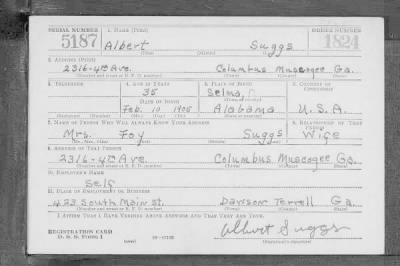 SERIAL NUMBER 1. NAME (Print) ORDER NUMBER
5187 Albert Suggs 1824
(First) (Middle) (Last)
2. ADDRESS (Print)
2316-4th Ave. Columbus Muscogee Ga.
(Number and street or R. F. D. number) (Town) (County) (State)
3. TELEPHONE 4. AGE IN YEARS 5. PLACE OF BIRTH 6. COUNTRY OF CITIZENSHIP
35 Selma,
DATE OF BIRTH (Town or county)
Feb. 10 1905 Alabama U.S.A.
(Mo.) (Day) (Yr.) (State or country)
7. NAME OF PERSON WHO WILL ALWAYS KNOW YOUR ADDRESS 8. RELATIONSHIP OF THAT PERSON
Mrs. Foy Suggs Wife
(Mr., Mrs., Miss) (First) (Middle) (Last)
9. ADDRESS OF THAT PERSON
2316-4th Ave. Columbus Muscogee Ga.
(Number and street or R. F. D. number) (Town) (County) (State)
10. EMPLOYER'S NAME
Self
11. PLACE OF EMPLOYMENT OR BUSINESS
423 South Main St. Dawson Terrell Ga.
(Number and street or R. F. D. number) (Town) (County) (State)
I AFFIRM THAT I HAVE VERIFIED ABOVE ANSWERS AND THAT THEY ARE TRUE.
REGISTRATION CARD Albert Suggs
D. S. S. FORM 1 (over) (Registrant's signature)